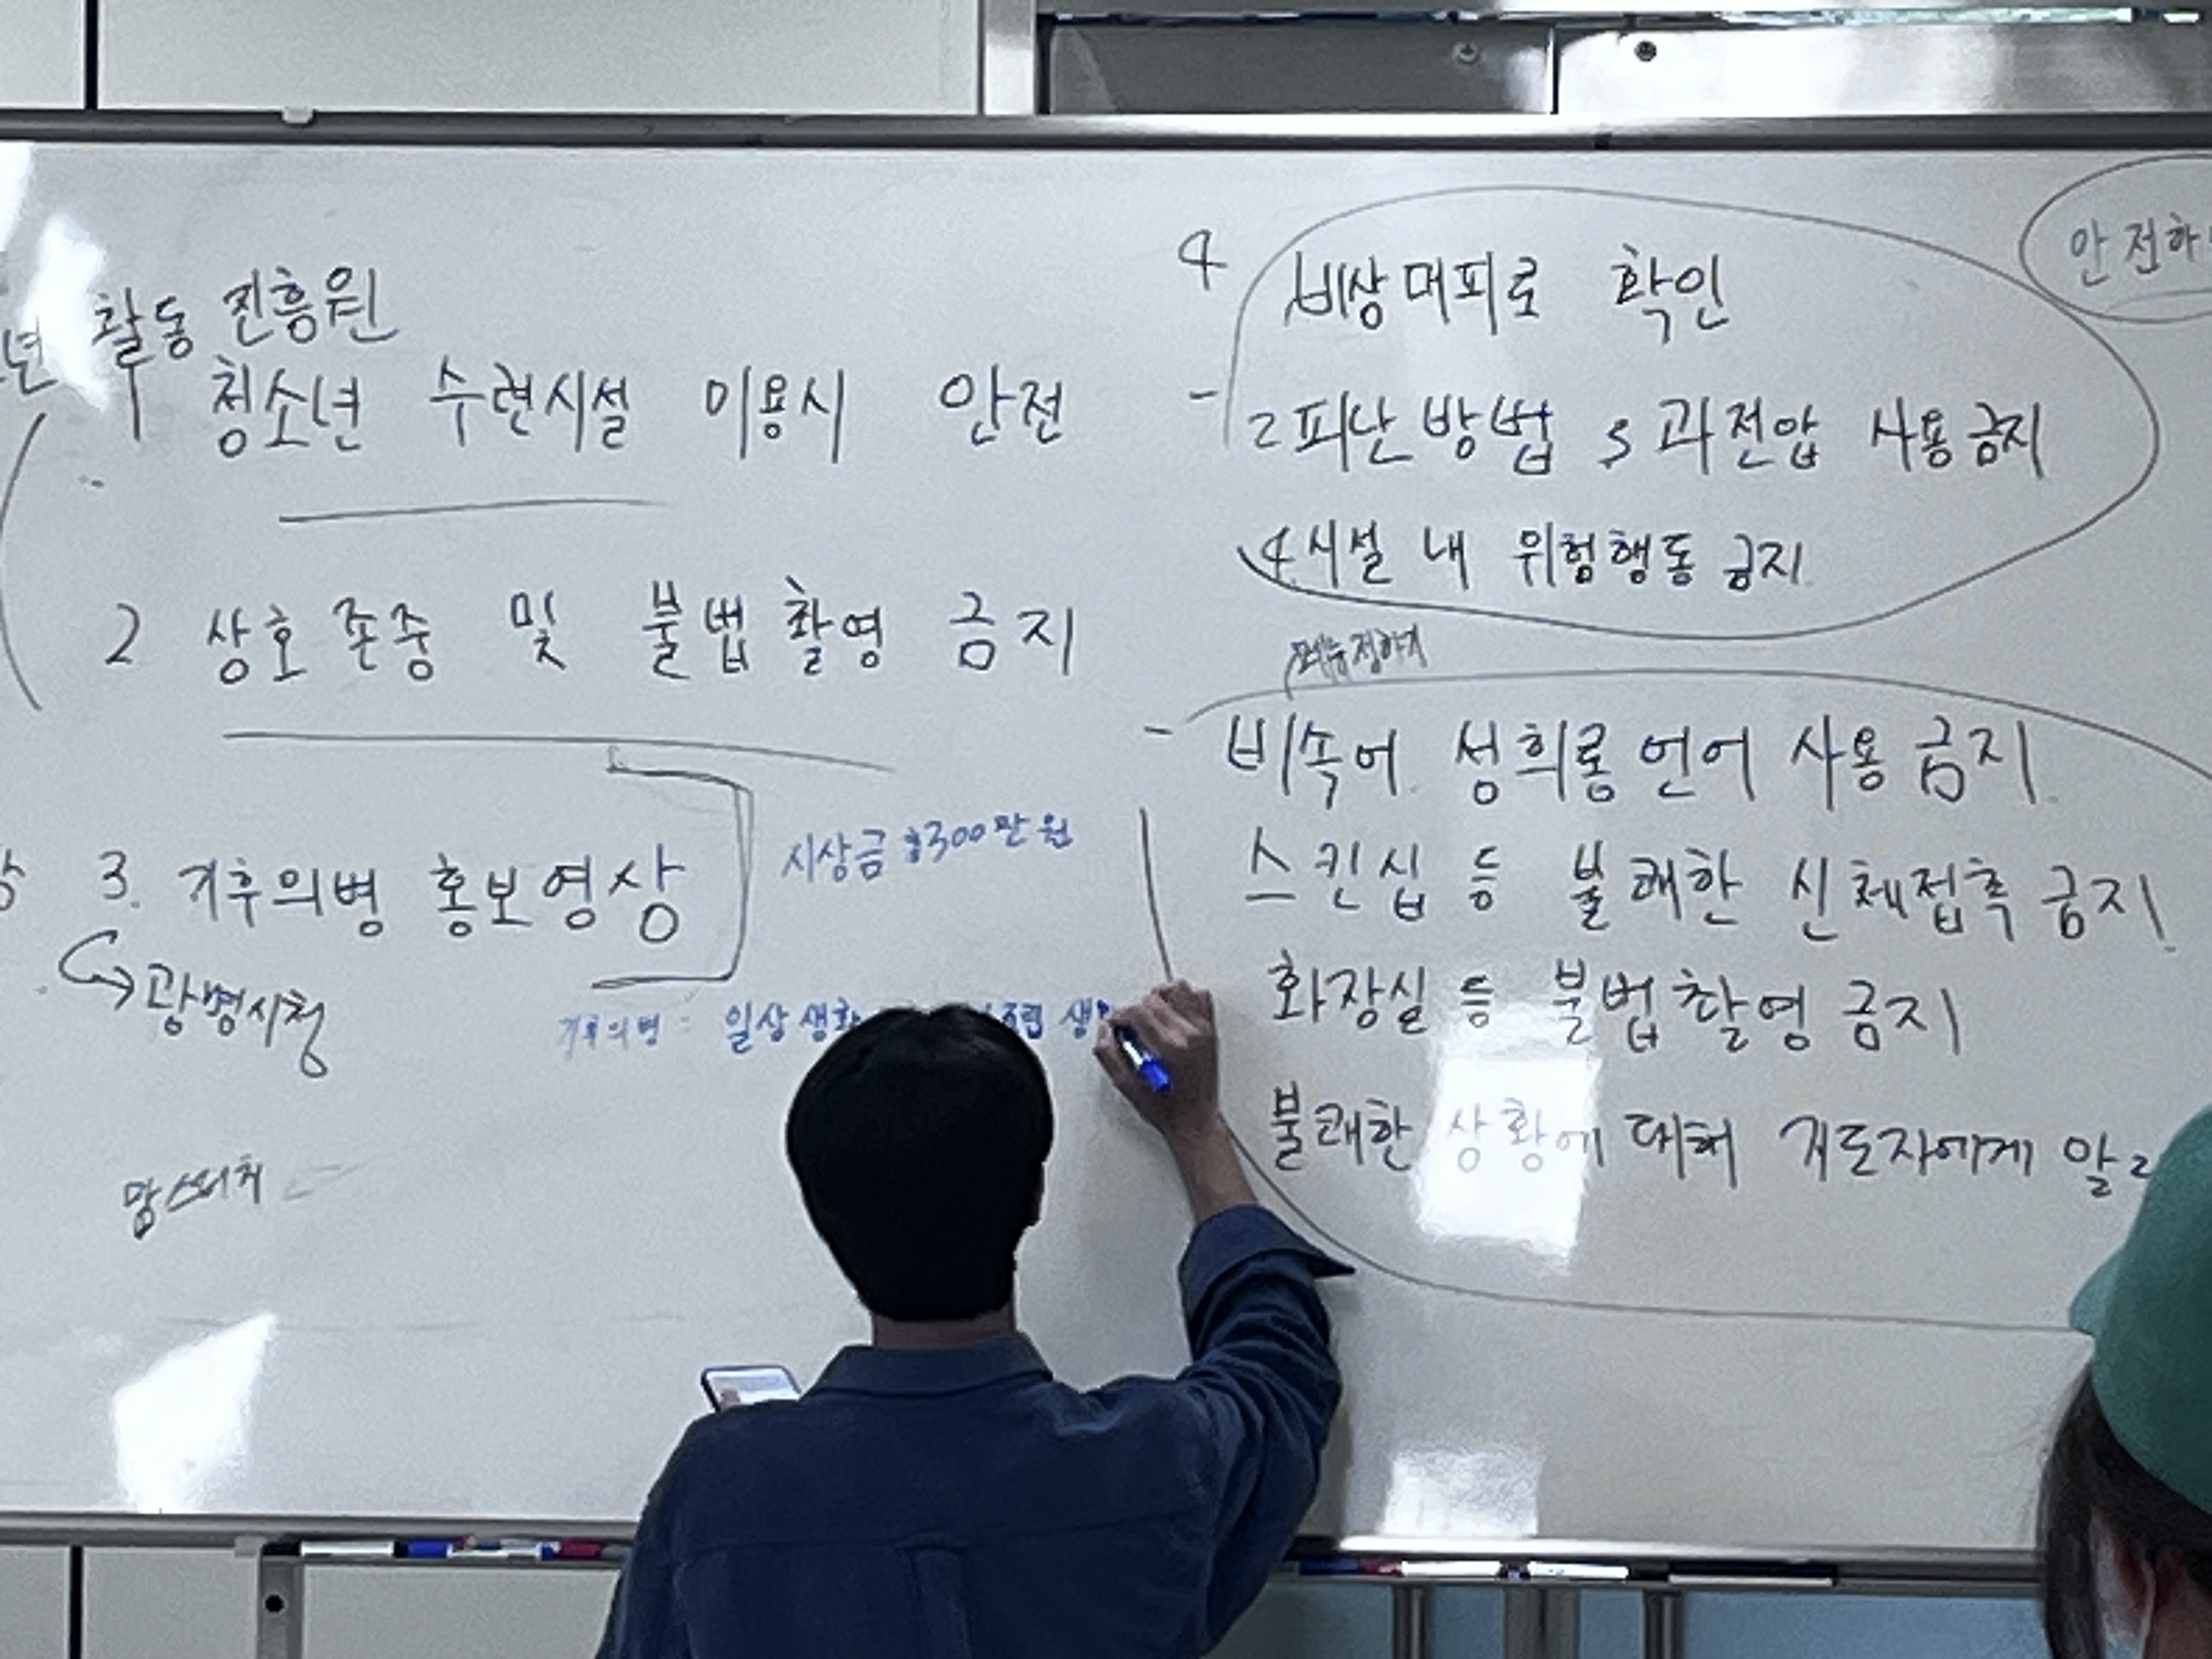 활동 진흥원
1 청소년 수련시설 이용시 안전
2 상호 존중 및 불법 촬영 금지
3. 기후의병 홍보영상
시상금 300만원
광명시청
기후의병 : 일상 생활
4 비상대피로 확인
- 2 피난방법 3 과전압 사용금지
4 시설 내 위험행동 금지
- 비속어 성희롱 언어 사용 금지
스킨십 등 불쾌한 신체접촉 금지!
화장실 등 불법촬영 금지
불쾌한 상황에 대해 지도자에게